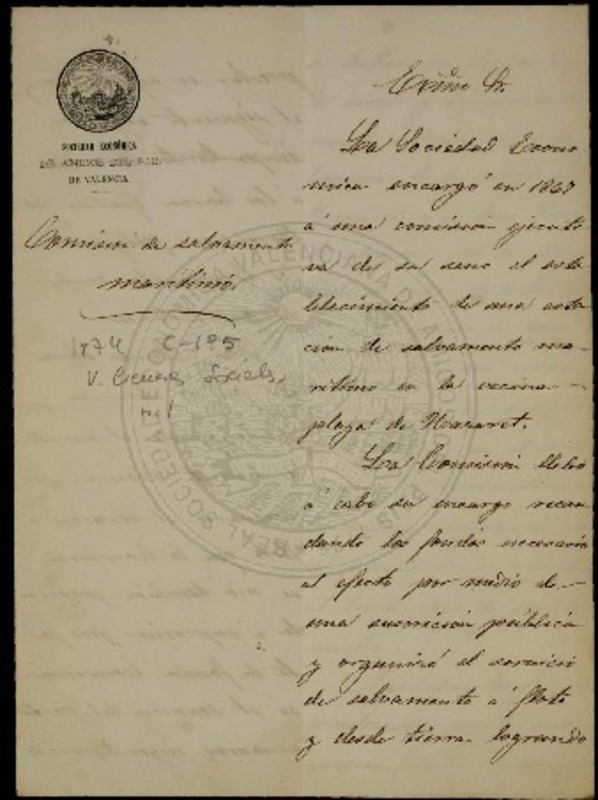 SOCIEDAD ECONÓMICA
DE AMIGOS DEL PAIS
DE VALENCIA.
Comision de salvamento
maritimo.
1874 C-185
V. Ciencias Sociales
nº 1
Exmo Sr.
La Sociedad Econo
mica encargó en 1869
á una comision ejecuti
va de su seno el esta
blecimiento de una esta
cion de salvamento ma
ritimo en la vecina
playa de Nazaret.
La Comision llevó
á cabo su encargo recau
dando los fondos necesarios
al efecto por medio de
una suscricion pública
y organizó el servicio
de salvamento á flote
y desde tierra logrando